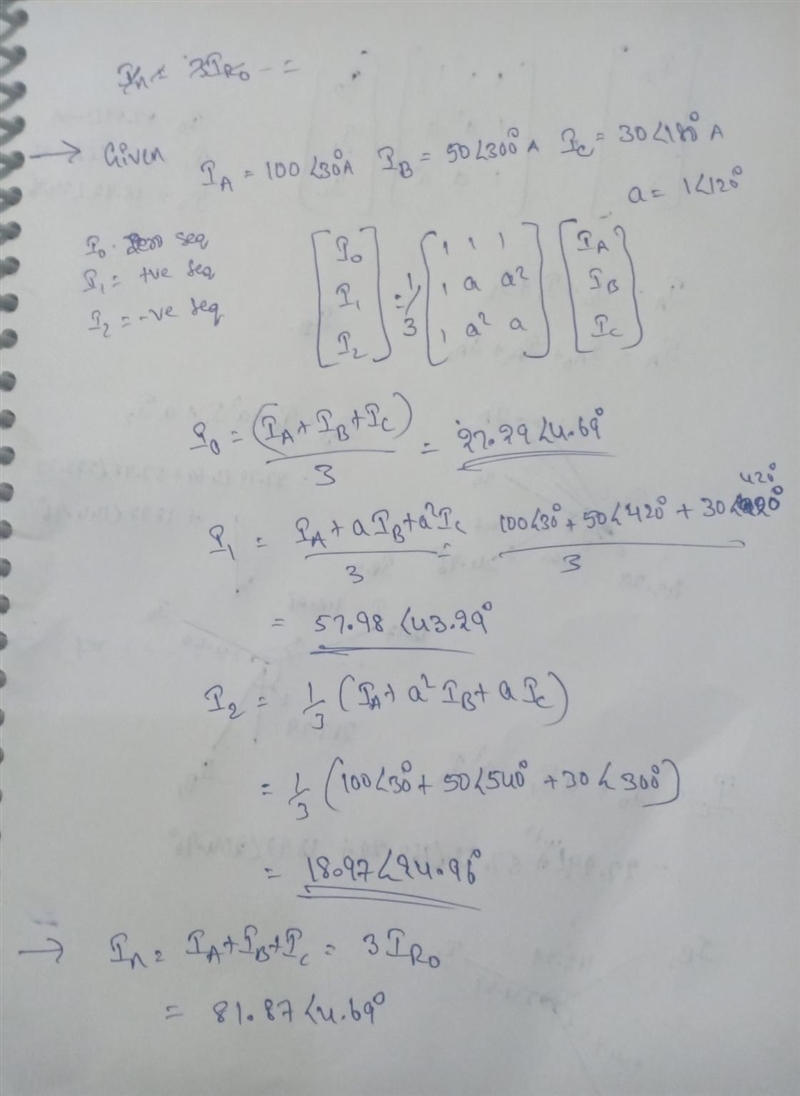 In = 3IR0 =
→ Given IA = 100∠30° A IB = 50∠300° A IC = 30∠180° A
a = 1∠120°
I0 = zero seq
I1 = +ve seq
I2 = -ve seq
[I0 I1 I2] = 1/3 [1 1 1 1 a a² 1 a² a] [IA IB IC]
I0 = (IA + IB + IC) / 3 = 27.29∠4.69°
I1 = IA + aIB + a²IC / 3 = 100∠30° + 50∠420° + 30∠420° / 3
= 57.98∠43.29°
I2 = 1/3 (IA + a² IB + a IC)
= 1/3 (100∠30° + 50∠540° + 30∠300°)
= 18.97∠24.96°
→ In = IA + IB + IC = 3 IR0
= 81.87∠4.69°